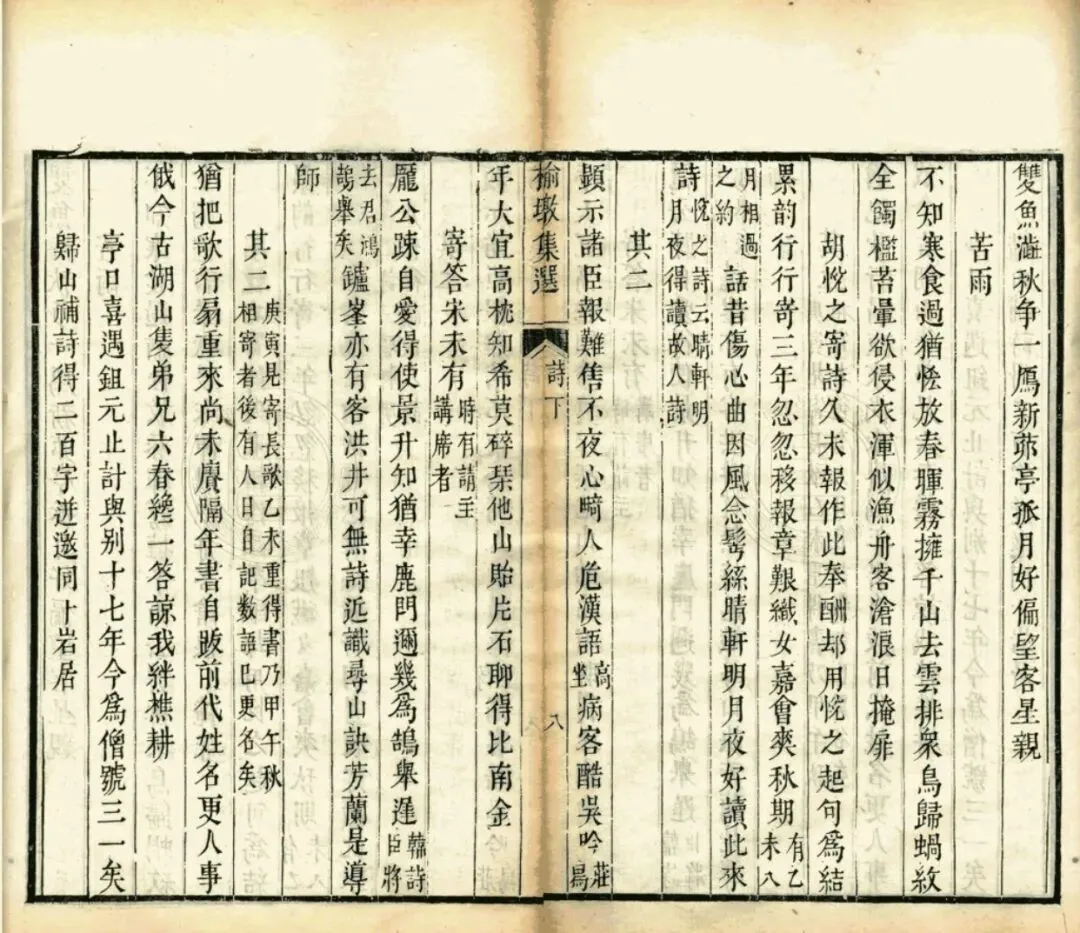 雙魚游秋爭一鴈新茆亭孤月好偏望客星親
苦雨
不知寒食過猶怪放春暉霧擁千山去雲排衆鳥歸蝸紋
全觸檻苔暈欲侵衣渾似漁舟客滄浪日掩扉
胡悅之寄詩久未報作此奉酬却用悅之起句爲結
累韵行行寄三年忽忽移報章艱織女嘉會爽秋期有乙未八
月相過之約話昔傷心曲因風念鬂絲晴軒明月夜好讀此來
詩悅之詩云晴軒明月夜得讀故人詩
其二
顕示諸臣報難售不夜心畸人危漢語高坐病客酷吳吟莊舄
榆墩集選 詩下 八
年大宜高枕知希莫碎琹他山貽片石聊得比南金
寄答宋未有時有請主講席者
龎公踈自愛得使景升知猶幸鹿門邇幾爲鵠舉遲韓詩臣將
去君鴻鵠舉矣鑪峯亦有客洪井可無詩近識尋山訣芳蘭是導
師
其二庚寅見寄長歌乙未重得書乃甲午秋相寄者後有人日自記数語巳更名矣
猶把歌行扇重來尚未賡隔年書自跋前代姓名更人事
俄今古湖山隻弟兄六春纔一答諒我絆樵耕
亭口喜遇鉏元止計與别十七年今爲僧號三一矣
歸山補詩得二百字迸邀同十岩居